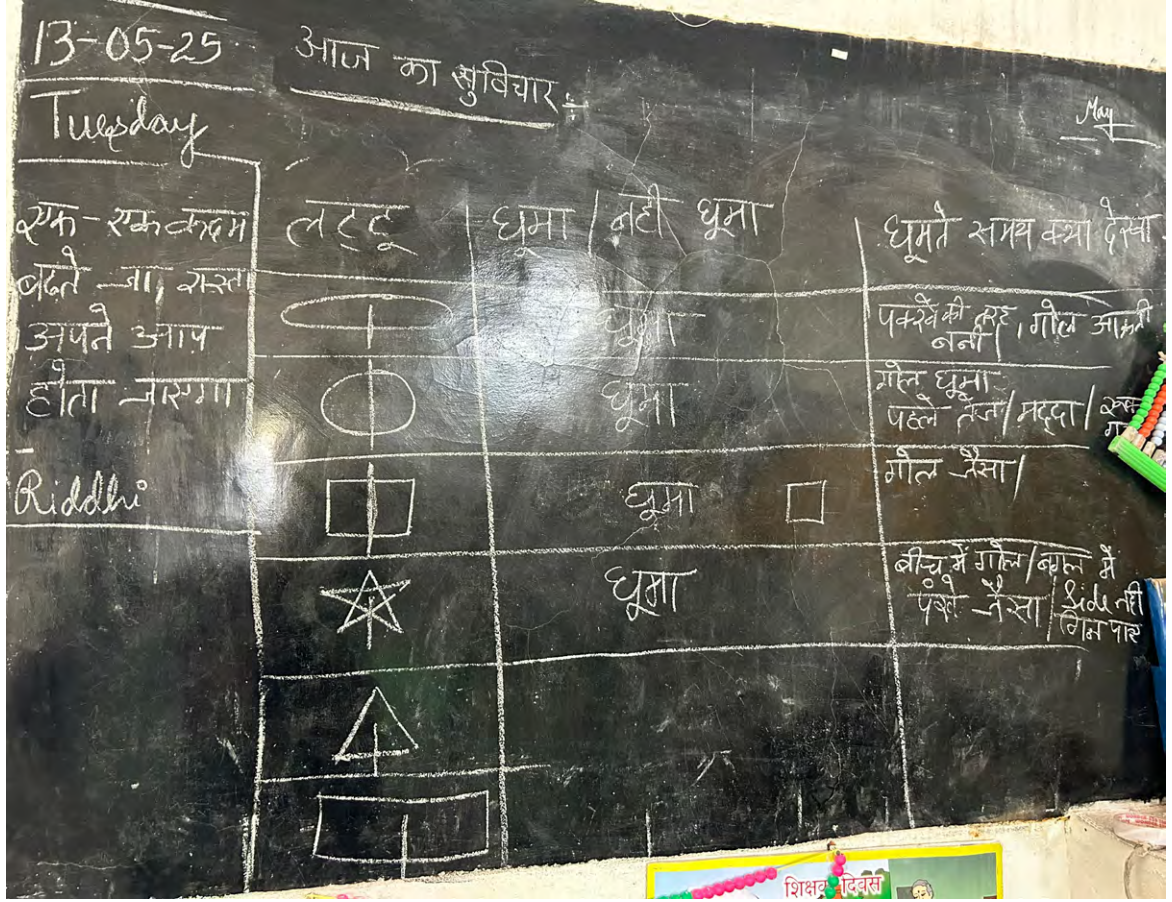 13-05-25
Tuesday
आज का सुविचार :-
May
एक-एक कदम
बढते जा, रास्ता
अपने आप
होता जाएगा
-
Riddhi
लट्टू | घूमा / नही घूमा | घूमते समय क्या देखा
घूमा | पक्खे की तरह, गोल आकृती
बनी |
घूमा | गोल घूमा
पहले तेज / मद्दा /
घूमा | गोल जैसा /
घूमा | बीच में गोल / बगल में
पंखे जैसा / Side नही
गिन पाए
शिक्षक दिवस